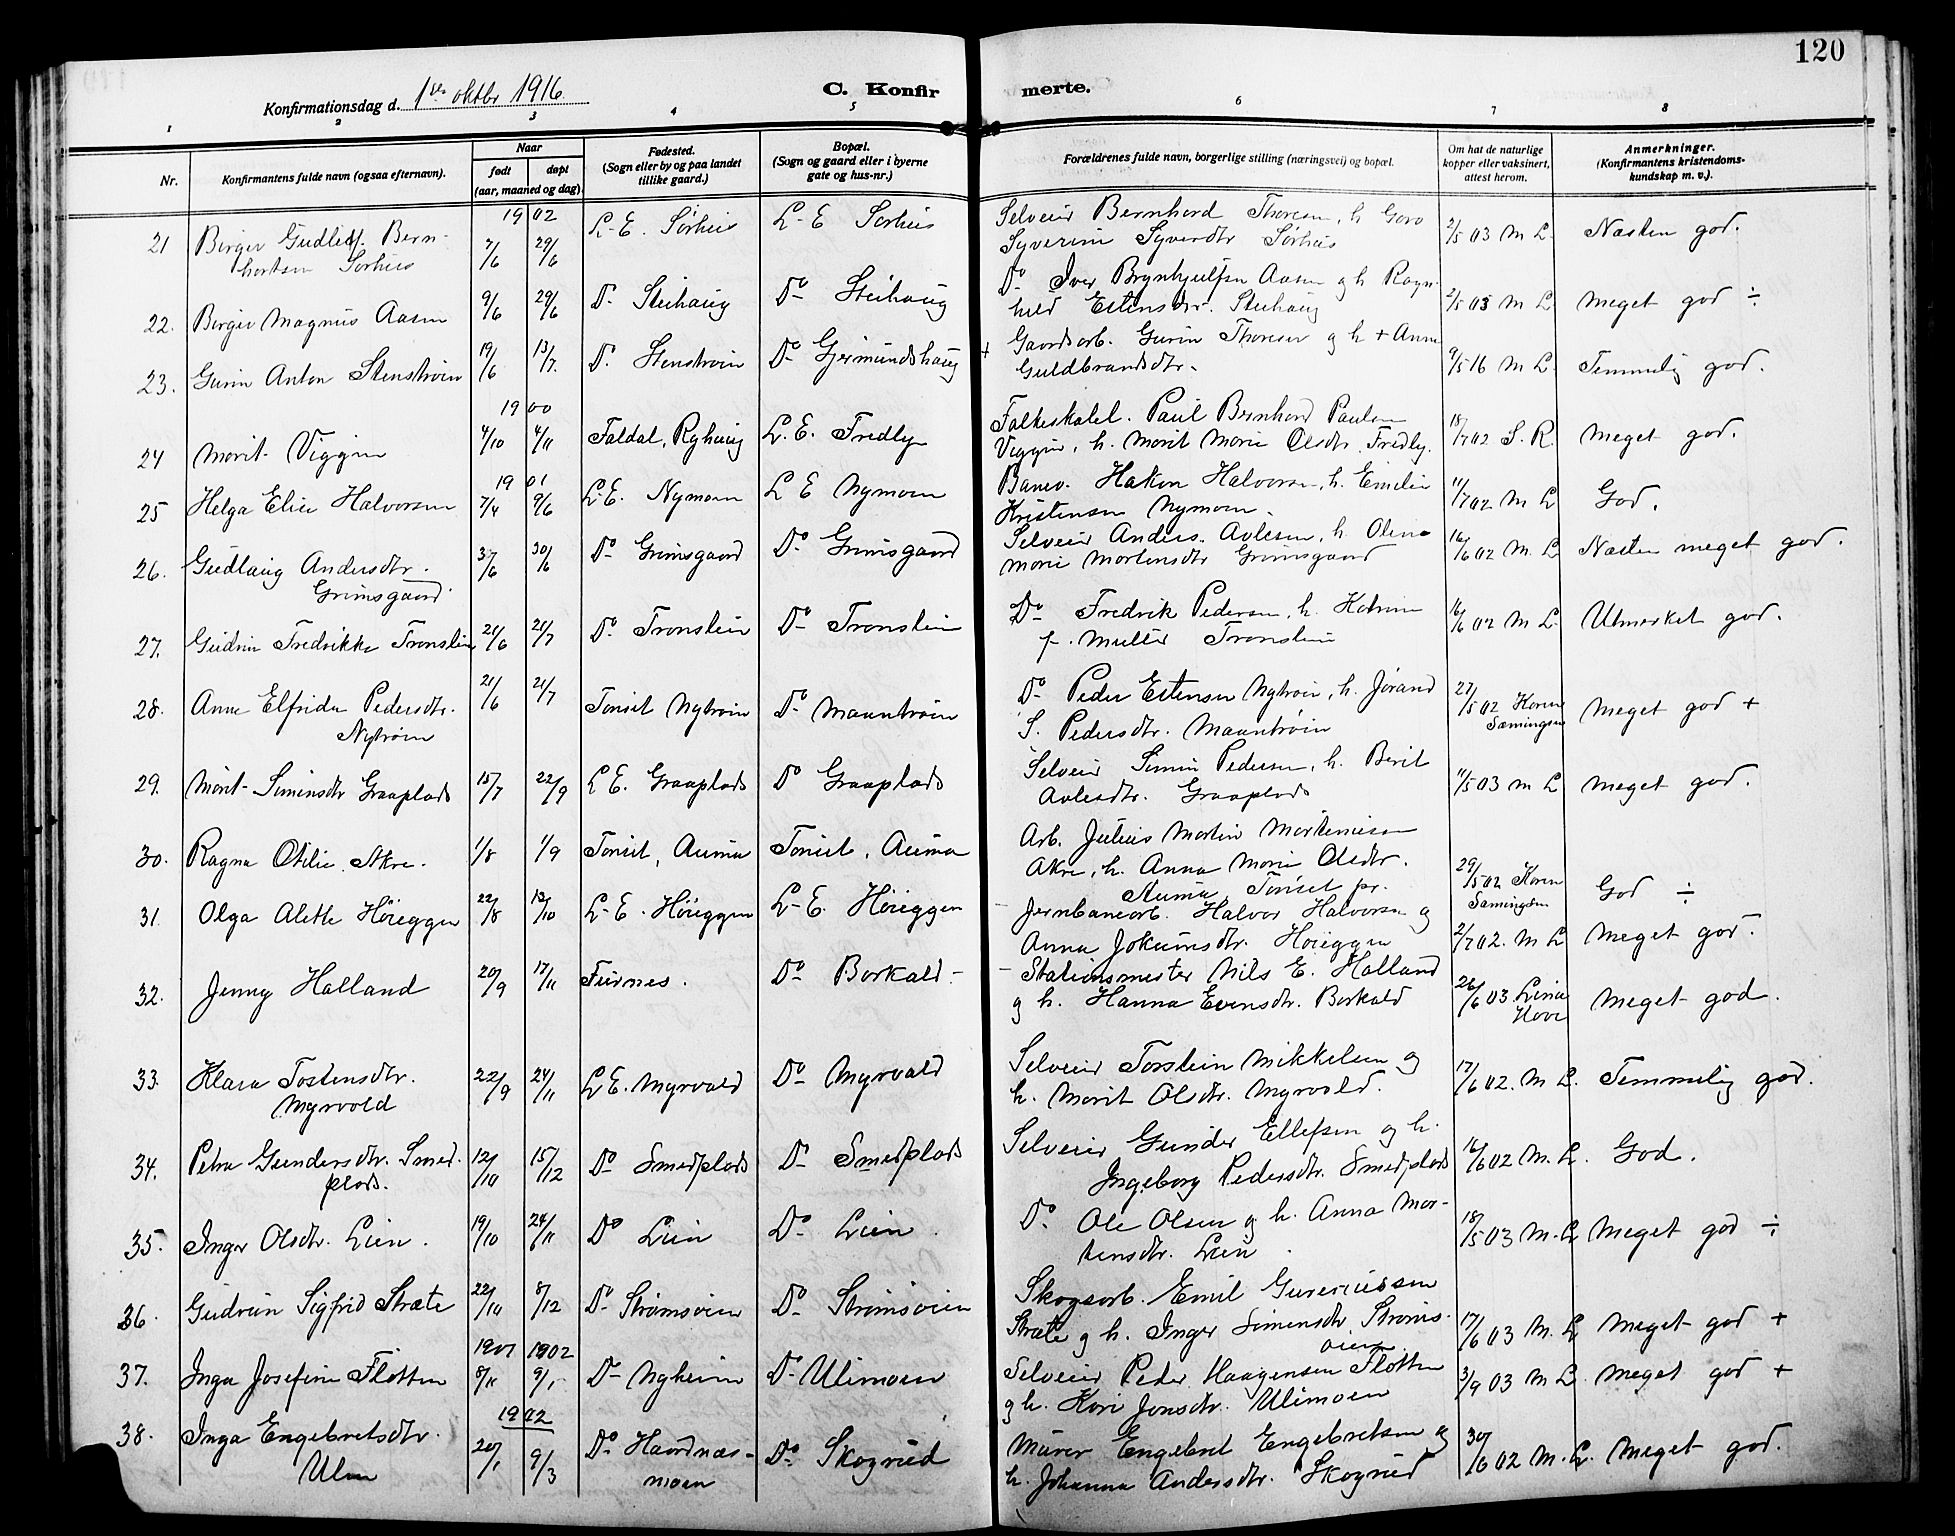 120
Konfirmationsdag d. 1ste oktbr 1916.
C. Konfirmerte.
1 2 3 4 5 6 7 8
Nr.
Konfirmantens fulde navn (ogsaa efternavn).
Naar
født
døpt
(aar, maaned og dag).
Fødested.
(Sogn eller by og paa landet
tillike gaard.)
Bopæl.
(Sogn og gaard eller i byerne
gate og hus-nr.)
Forældrenes fulde navn, borgerlige stilling (næringsvei) og bopæl.
Om hat de naturlige
kopper eller vaksinert,
attest herom.
Anmerkninger.
(Konfirmantens kristendoms-
kundskap m. v.).
1902
21 Birger Gudleif Bern- 7/6 29/6 L-E. Sørhus L-E Sørhus Selveier Bernhard Thoresen, h. Goro 2/5 03 M L. Næsten god.
hartsen Sørhus Syverine Syversdtr Sørhus
22. Birger Magnus Aasen 9/6 29/6 Do Steihaug Do Steihaug Do Iver Brynhjulfsen Aasen og h Ragn- 2/5 03 M L Meget god ÷
hild Estensdtr. Steihaug
23. Gurin Anton Stenstrøin 19/6 13/7. Do Stenstrøin Do Gjermundshaug + Gaardsarb. Gurin Thoresen og h + Anne 9/5 16 M L. Temmelig god.
Guldbrandsdtr.
1900
24 Morit Viggen 4/10 4/11 Faldal, Ryhaug L.E. Fredly Paul Bernhard Paulsen 18/7 02 S. R. Meget god.
Viggen, h. Morit Marie Olsdtr. Fredly.
1901
25 Helga Elise Halvorsen 7/4 9/6 L.E. Nymoen L E Nymoen Banev. Hakon Halvorsen, h. Emilie 11/7 02 M L God.
Kristensen Nymoen.
26. Gudlaug Andersdtr. 3/6 30/6 Do Grimsgaard Do Grimsgaard Selveier Anders Avlesen, h. Oline 16/6 02 M. L Næsten meget god.
Grimsgaard Marie Mortensdtr Grimsgaard
27. Gudrun Fredrikke Tronslien 21/6 21/7 Do Tronslien Do Tronslien Do Fredrik Pedersen, h. Katrine 16/6 02 M L. Utmerket god.
f. Muller Tronslien
28. Anne Elfrida Pedersdtr. 21/6 21/7 Tønset Nytrøin Do Maantrøin Do Peder Estensen Nytrøin, h. Jørand 27/5 02 Karen Meget god +
Nytrøin S. Pedersdtr. Maantrøin Sæmingsen
29. Morit Simensdtr Graaplads 15/7 22/9 L E. Graaplads Do Graaplads Selveier Simen Pedersen, h. Berit 11/5 03 M L Meget god.
Avlesdtr. Graaplads
30. Ragna Otilie Akre. 1/8 1/9 Tønset, Auma Tønset, Auma Arb. Julius Martin Martinusen
Akre, h. Anna Marie Olsdtr. 29/5 02 Karen God ÷
Auma, Tønset pr. Sæmingsen
31. Olga Alette Høieggen 22/8 13/10 L-E. Høieggen L-E. Høieggen Jernbanearb. Halvor Halvorsen og 2/7 02. M L Meget god.
Anna Jokumsdtr. Høieggen
32. Jenny Halland 20/9 17/11 Furnes. Do Barkald Stationsmester Nils E. Halland 26/6 03 Lina Meget god.
og h. Hanna Evensdtr. Barkald Hove
33. Klara Tostensdtr. 22/9 24/11 L E. Myrvold Do Myrvold Selveier Torstein Mikkelsen og 17/6 02. M L. Temmelig god.
Myrvold h. Morit Olsdtr. Myrvold.
34. Petra Gundersdtr. Smed- 12/10 15/12 Do Smedplads Do Smedplads Selveier Gunder Ellefsen og h. 16/6 02 M. L. God.
plads. Ingeborg Pedersdtr. Smedplads
35. Inger Olsdtr. Lien. 19/10 24/11 Do Lien Do Lien. Do Ole Olsen og h. Anna Mor- 18/5 03 M. L Meget god ÷
tensdtr. Lien.
36. Gudrun Sigfrid Stræte 22/10 8/12 Do Strømsøien Do Strømsøien Skogsarb. Emil
Stræte og h. Inger Simensdtr Strøms- 17/6 03 M. L Meget god +
øien
1901 1902
37. Inga Josefine Fløtten 8/11 9/1 Do Nyheim Do Ulimoen Selveier Peder Haagensen Fløtten 3/9 03 M L Meget god +
og h. Kari Jonsdtr. Ulimoen
1902
38. Inga Engebretsdtr. 20/1 9/3 Do Haardnæs- Do Skogrud Murer Engebret Engebretsen og 30/6 02 M. L. Meget god.
Ulen moen h. Johanna Andersdtr. Skogrud